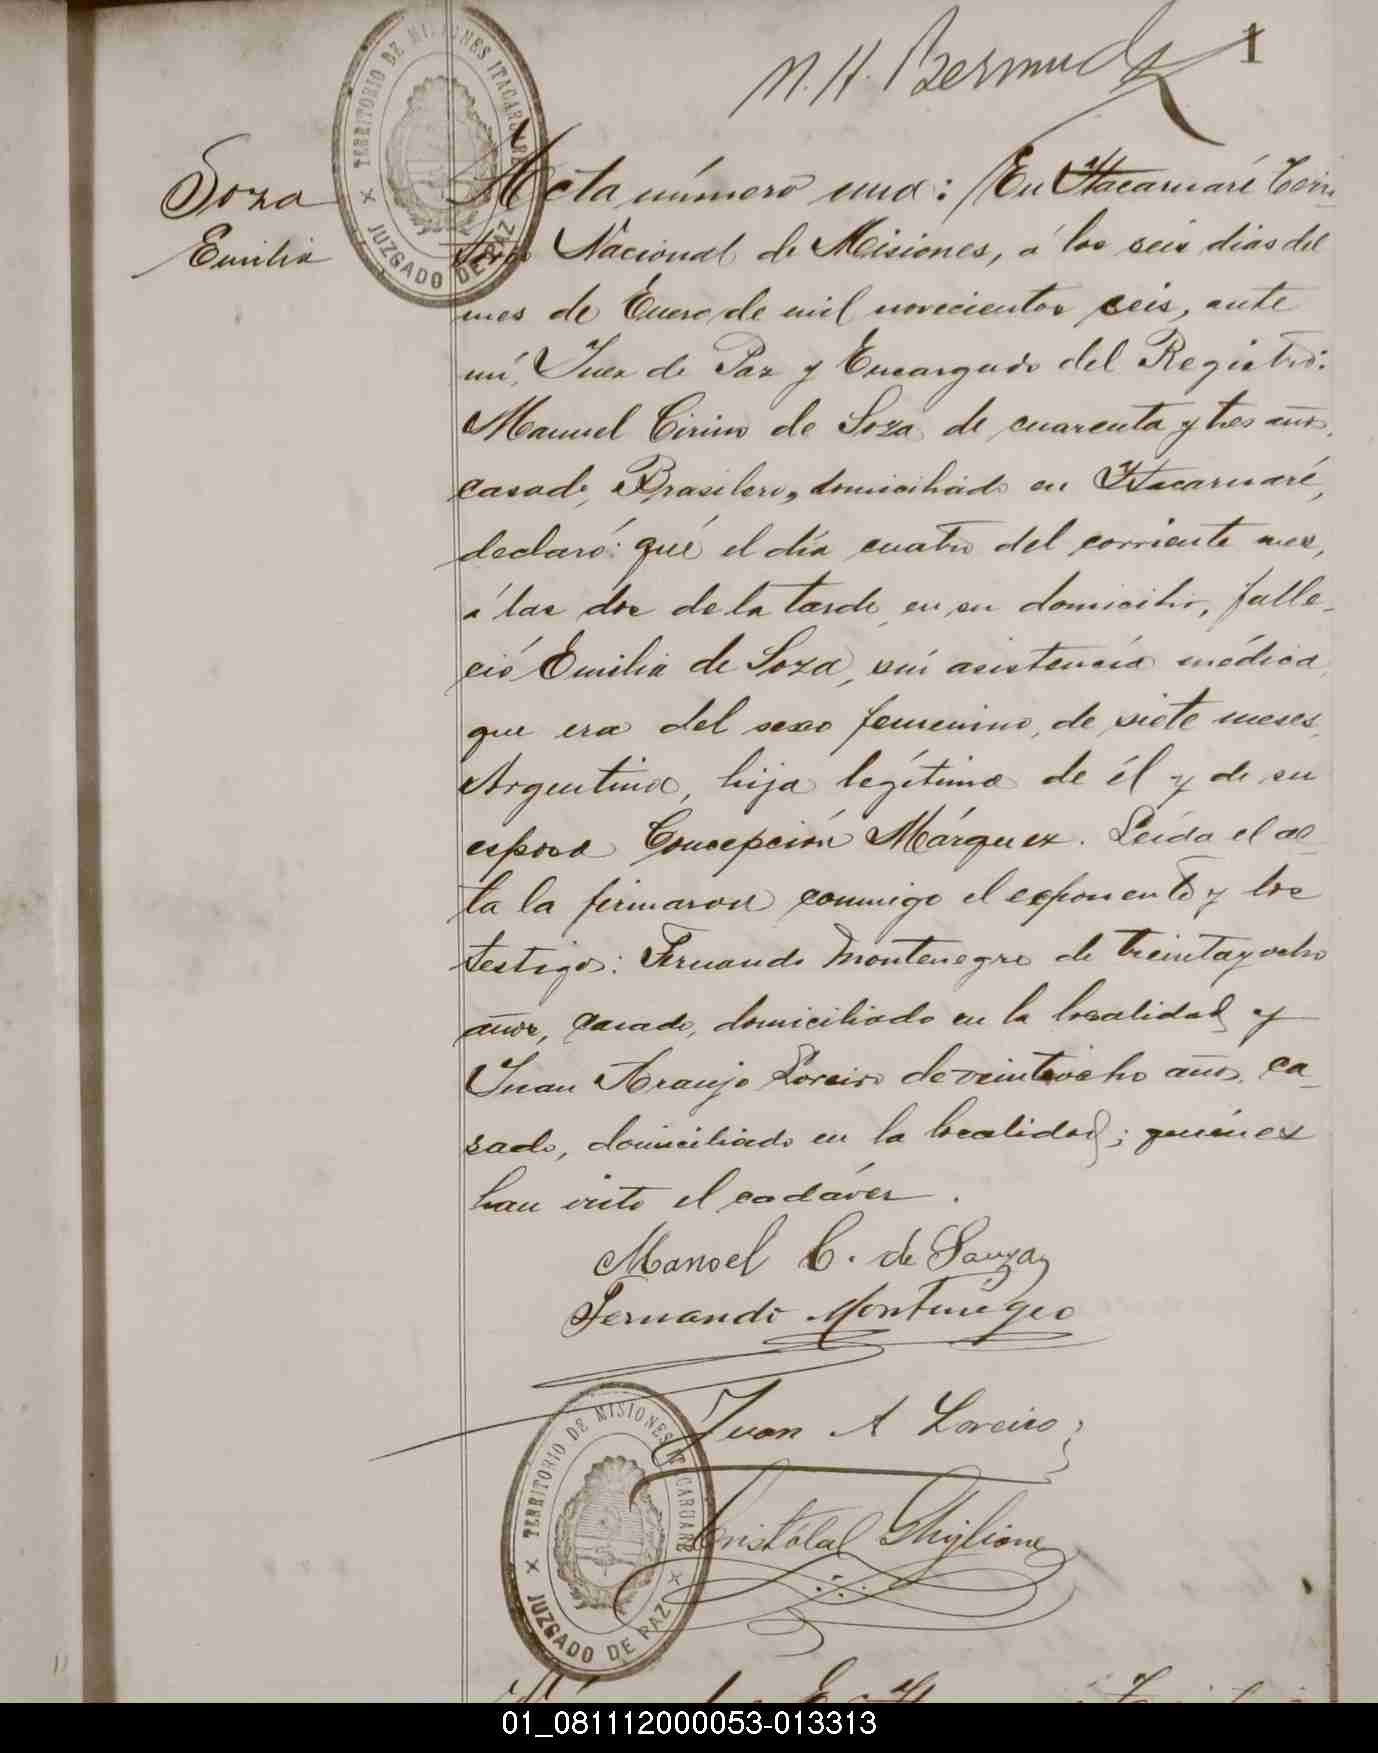 1
N. H. Bermudez
TERRITORIO DE MISIONES ITACARUARE
JUZGADO DE PAZ
Soza
Emilia
Acta número una: En Itacaruaré Terri-
torio Nacional de Misiones, á los seis dias del
mes de Enero de mil novecientos seis, ante
mí, Juez de Paz y Encargado del Registro:
Manuel Cirino de Soza, de cuarenta y tres años,
casado, Brasilero, domiciliado en Itacaruaré,
declaró: qué el día cuatro del corriente mes,
á las dos de la tarde, en su domicilio, falle-
ció Emilia de Soza, sin asistencia médica,
que era del sexo femenino, de siete meses,
Argentina, hija legítima de él y de su
esposa Concepción Márquez. Leída el ac-
ta la firmaron conmigo el exponente y los
testigos: Fernando Montenegro de treinta y ocho
años, casado, domiciliado en la localidad y
Juan Araujo Loreiro de veintiocho años, ca-
sado, domiciliado en la localidad; quiénes
han visto el cadáver.
Manoel C. de Souza
Fernando Montenegro
Juan A Loreiro
TERRITORIO DE MISIONES ITACARUARE
JUZGADO DE PAZ
Cristóbal Ghiglione
01_081112000053-013313